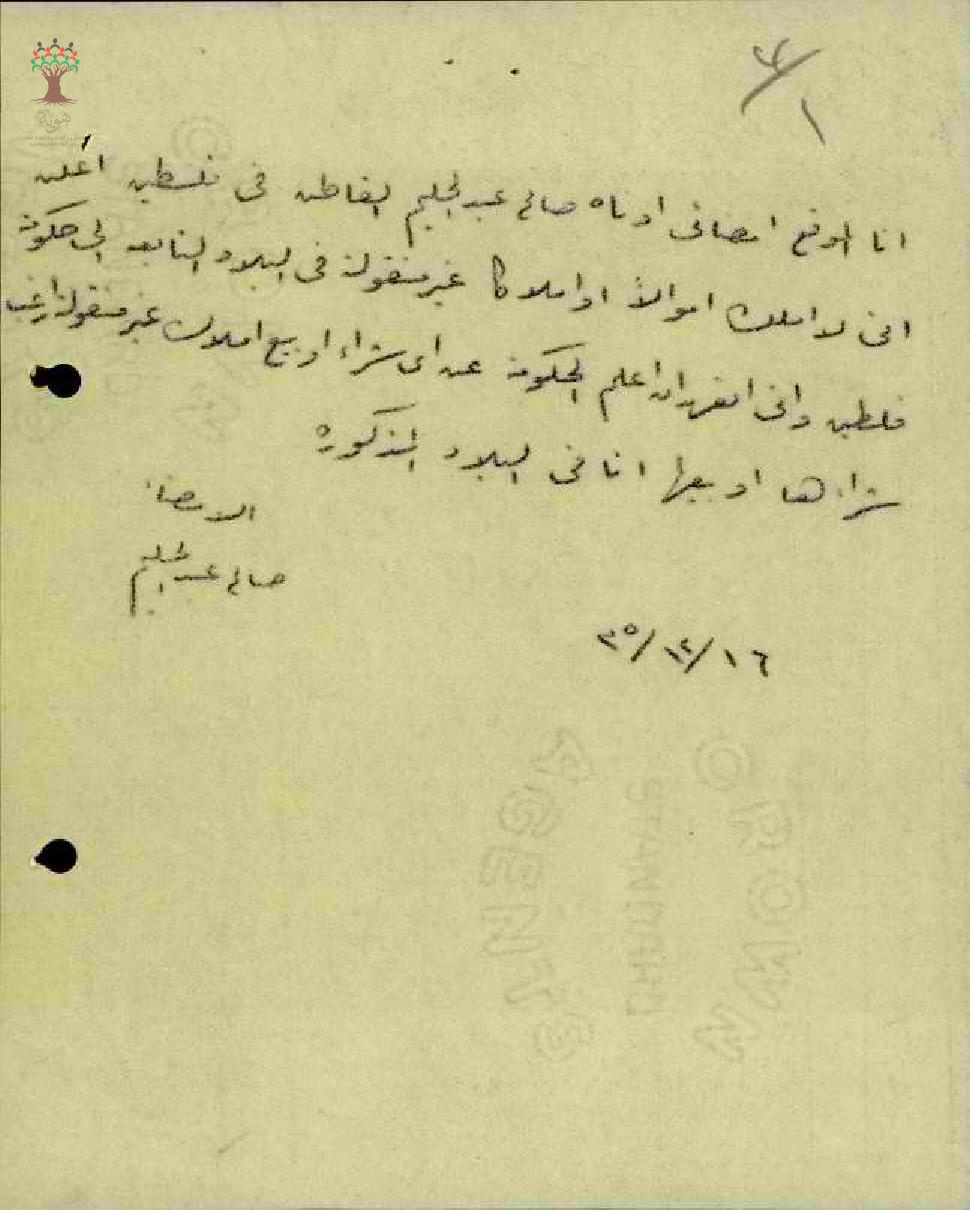 هوية
١
انا الموقع امضائي ادناه صالح عبد الحليم القاطن في فلسطين اعلن
اني لا املك اموالاً او املاكا غير منقولة في البلاد التابعه الى حكومة
فلسطين واني اتعهد ان اعلم الحكومة عن اي شراء او بيع املاك غير منقولة ارغب
شراءها او بيعها انا في البلاد المذكوره
الامضاء
صالح عبد الحليم
١٦/١٢/٣٥
CROWN
STANDARD
AGENTS